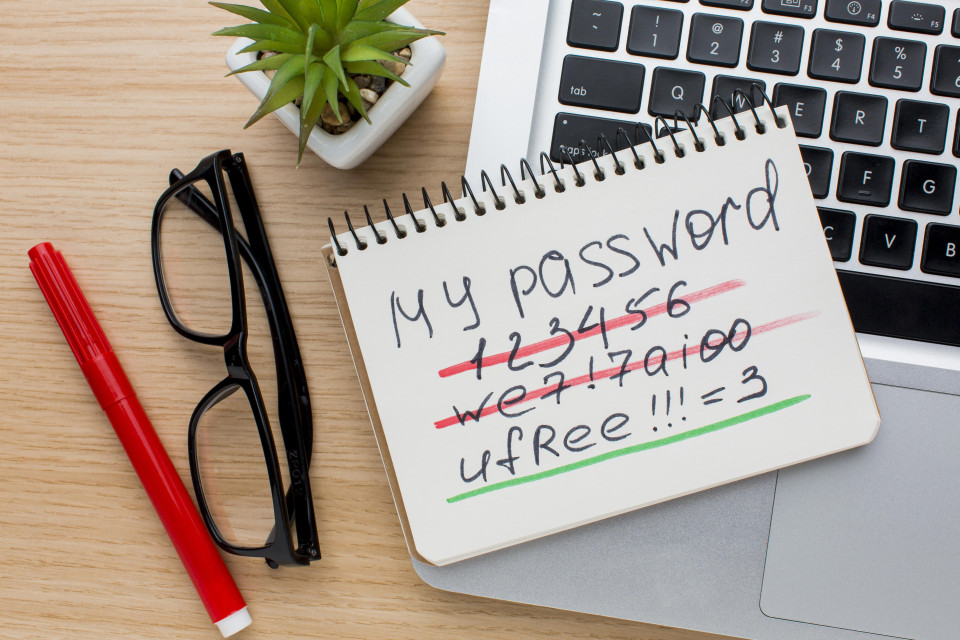 My password
123456
we7!7aioo
ufRee!!!=3
~
`
!
1
@
2
#
3
$
4
%
5
6
F3
F4
F5
tab
Q
W
E
R
T
caps lock
D
F
G
C
V
B